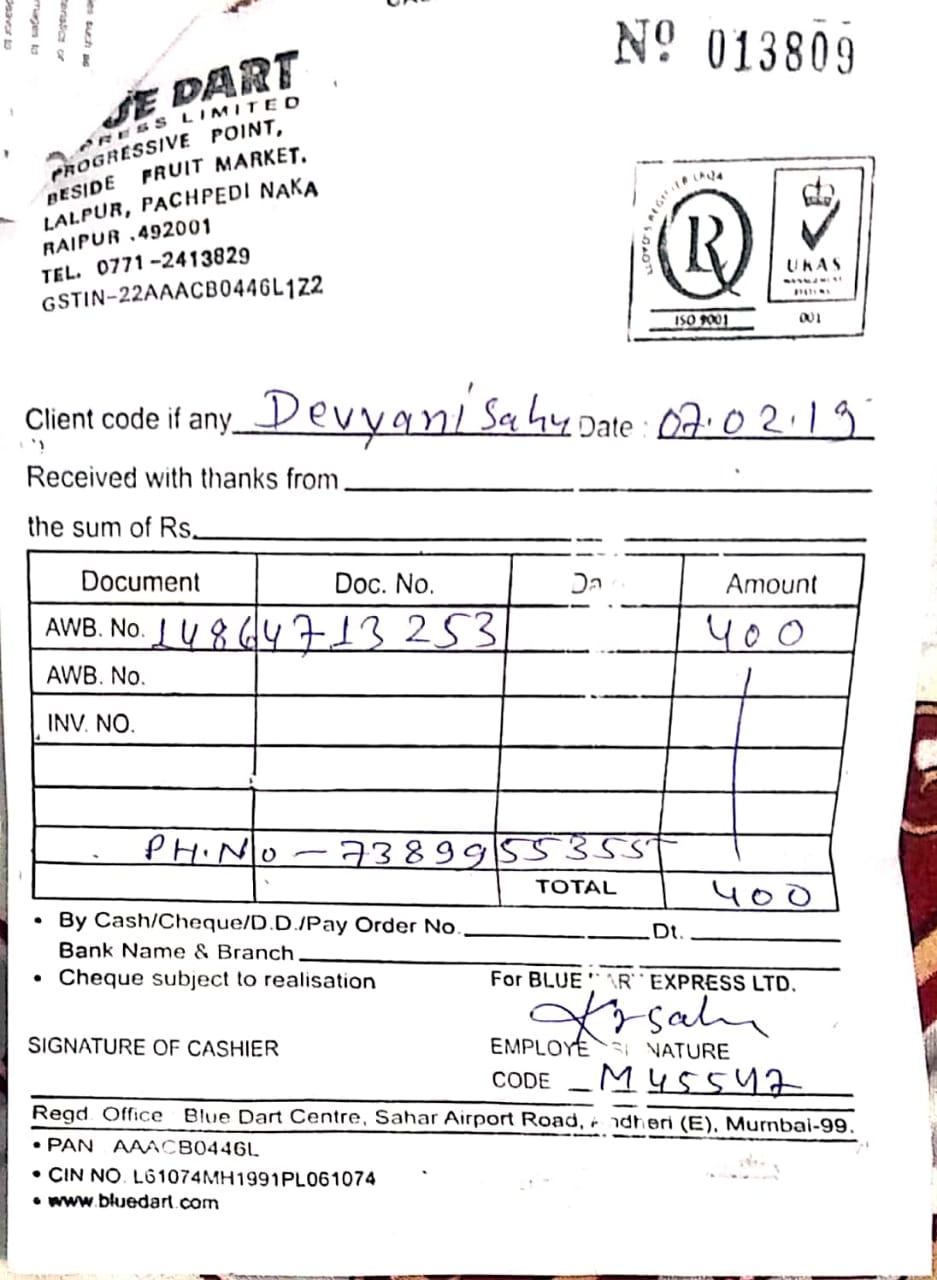 Nº 013809
UE DART
PRESS LIMITED
PROGRESSIVE POINT,
BESIDE FRUIT MARKET.
LALPUR, PACHPEDI NAKA
RAIPUR .492001
TEL. 0771-2413829
GSTIN-22AAACB0446L1Z2
LLOYD'S REGISTER LRQA
R
ISO 9001
UKAS
MANAGEMENT
SYSTEMS
001
Client code if any Devyani Sahu Date : 07.02.19
Received with thanks from
the sum of Rs.
Document Doc. No. Da Amount
AWB. No. 14864713253 400
AWB. No.
INV. NO.
PH.No - 7389955355
TOTAL 400
• By Cash/Cheque/D.D./Pay Order No. Dt.
Bank Name & Branch
• Cheque subject to realisation
For BLUE AR EXPRESS LTD.
SIGNATURE OF CASHIER
EMPLOYE SI NATURE
CODE M45547
Regd. Office Blue Dart Centre, Sahar Airport Road, ndheri (E), Mumbai-99.
• PAN AAACB0446L
• CIN NO. L61074MH1991PL061074
• www.bluedart.com